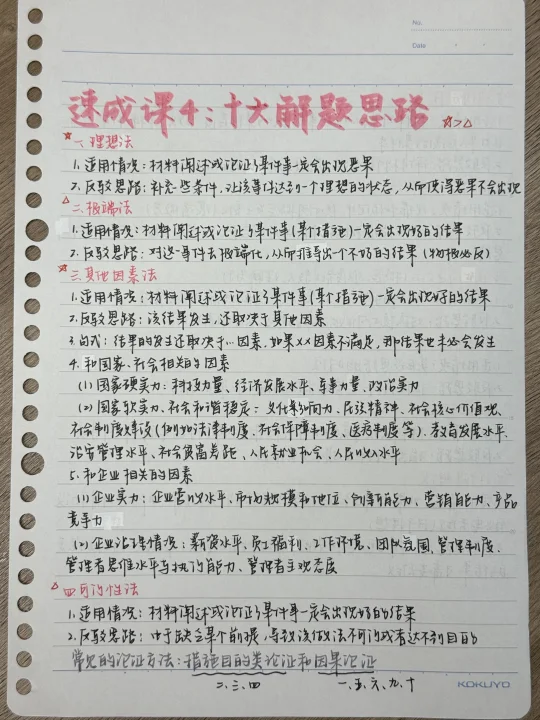 No.
Date
速成课4:十大解题思路 ☆>△
☆一.理想法
1.适用情况:材料阐述或论证了某件事一定会出现恶果
2.反驳思路:补充一些条件,让该事件达到一个理想的状态,从而使得恶果不会出现
△二.极端法
1.适用情况:材料阐述或论证了某件事(某个措施)一定会出现好的结果
2.反驳思路:对这一事件去极端化,从而推导出一个不好的结果(物极必反)
☆三.其他因素法
1.适用情况:材料阐述或论证了某件事(某个措施)一定会出现好的结果
2.反驳思路:该结果发生,还取决于其他因素
3.句式:结果的发生还取决于…因素,如果XX因素不满足,那结果也未必会发生
4.和国家、社会相关的因素
(1)国家硬实力:科技力量、经济发展水平、军事力量、政治实力
(2)国家软实力、社会和谐稳定:文化影响力、民族精神、社会核心价值观、
社会制度建设(例如法律制度、社会保障制度、医疗制度等)、教育发展水平、
治安管理水平、社会贫富差距、人民就业机会、人民收入水平
5.和企业相关的因素
(1)企业实力:企业营收水平、市场规模和地位、创新能力、营销能力、产品
竞争力
(2)企业治理情况:薪资水平、员工福利、工作环境、团队氛围、管理制度、
管理者思维水平与执行能力、管理者主观态度
△四.可行性法
1.适用情况:材料阐述或论证了某件事一定会出现好的结果
2.反驳思路:由于缺乏某个前提,导致该做法不可行或者达不到目的
常见的论证方法:措施目的类论证和因果论证
二、三、四 一、五、六、九、十
KOKUYO